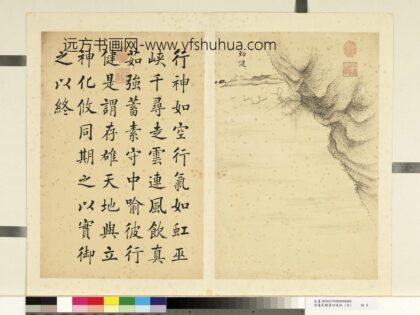 远方书画网-www.yfshuhua.com
勁健
行神如空行氣如虹巫
峽千尋走雲連風飲真
茹強蓄素守中喻彼行
健是謂存雄天地與立
神化攸同期之以實御
之以終